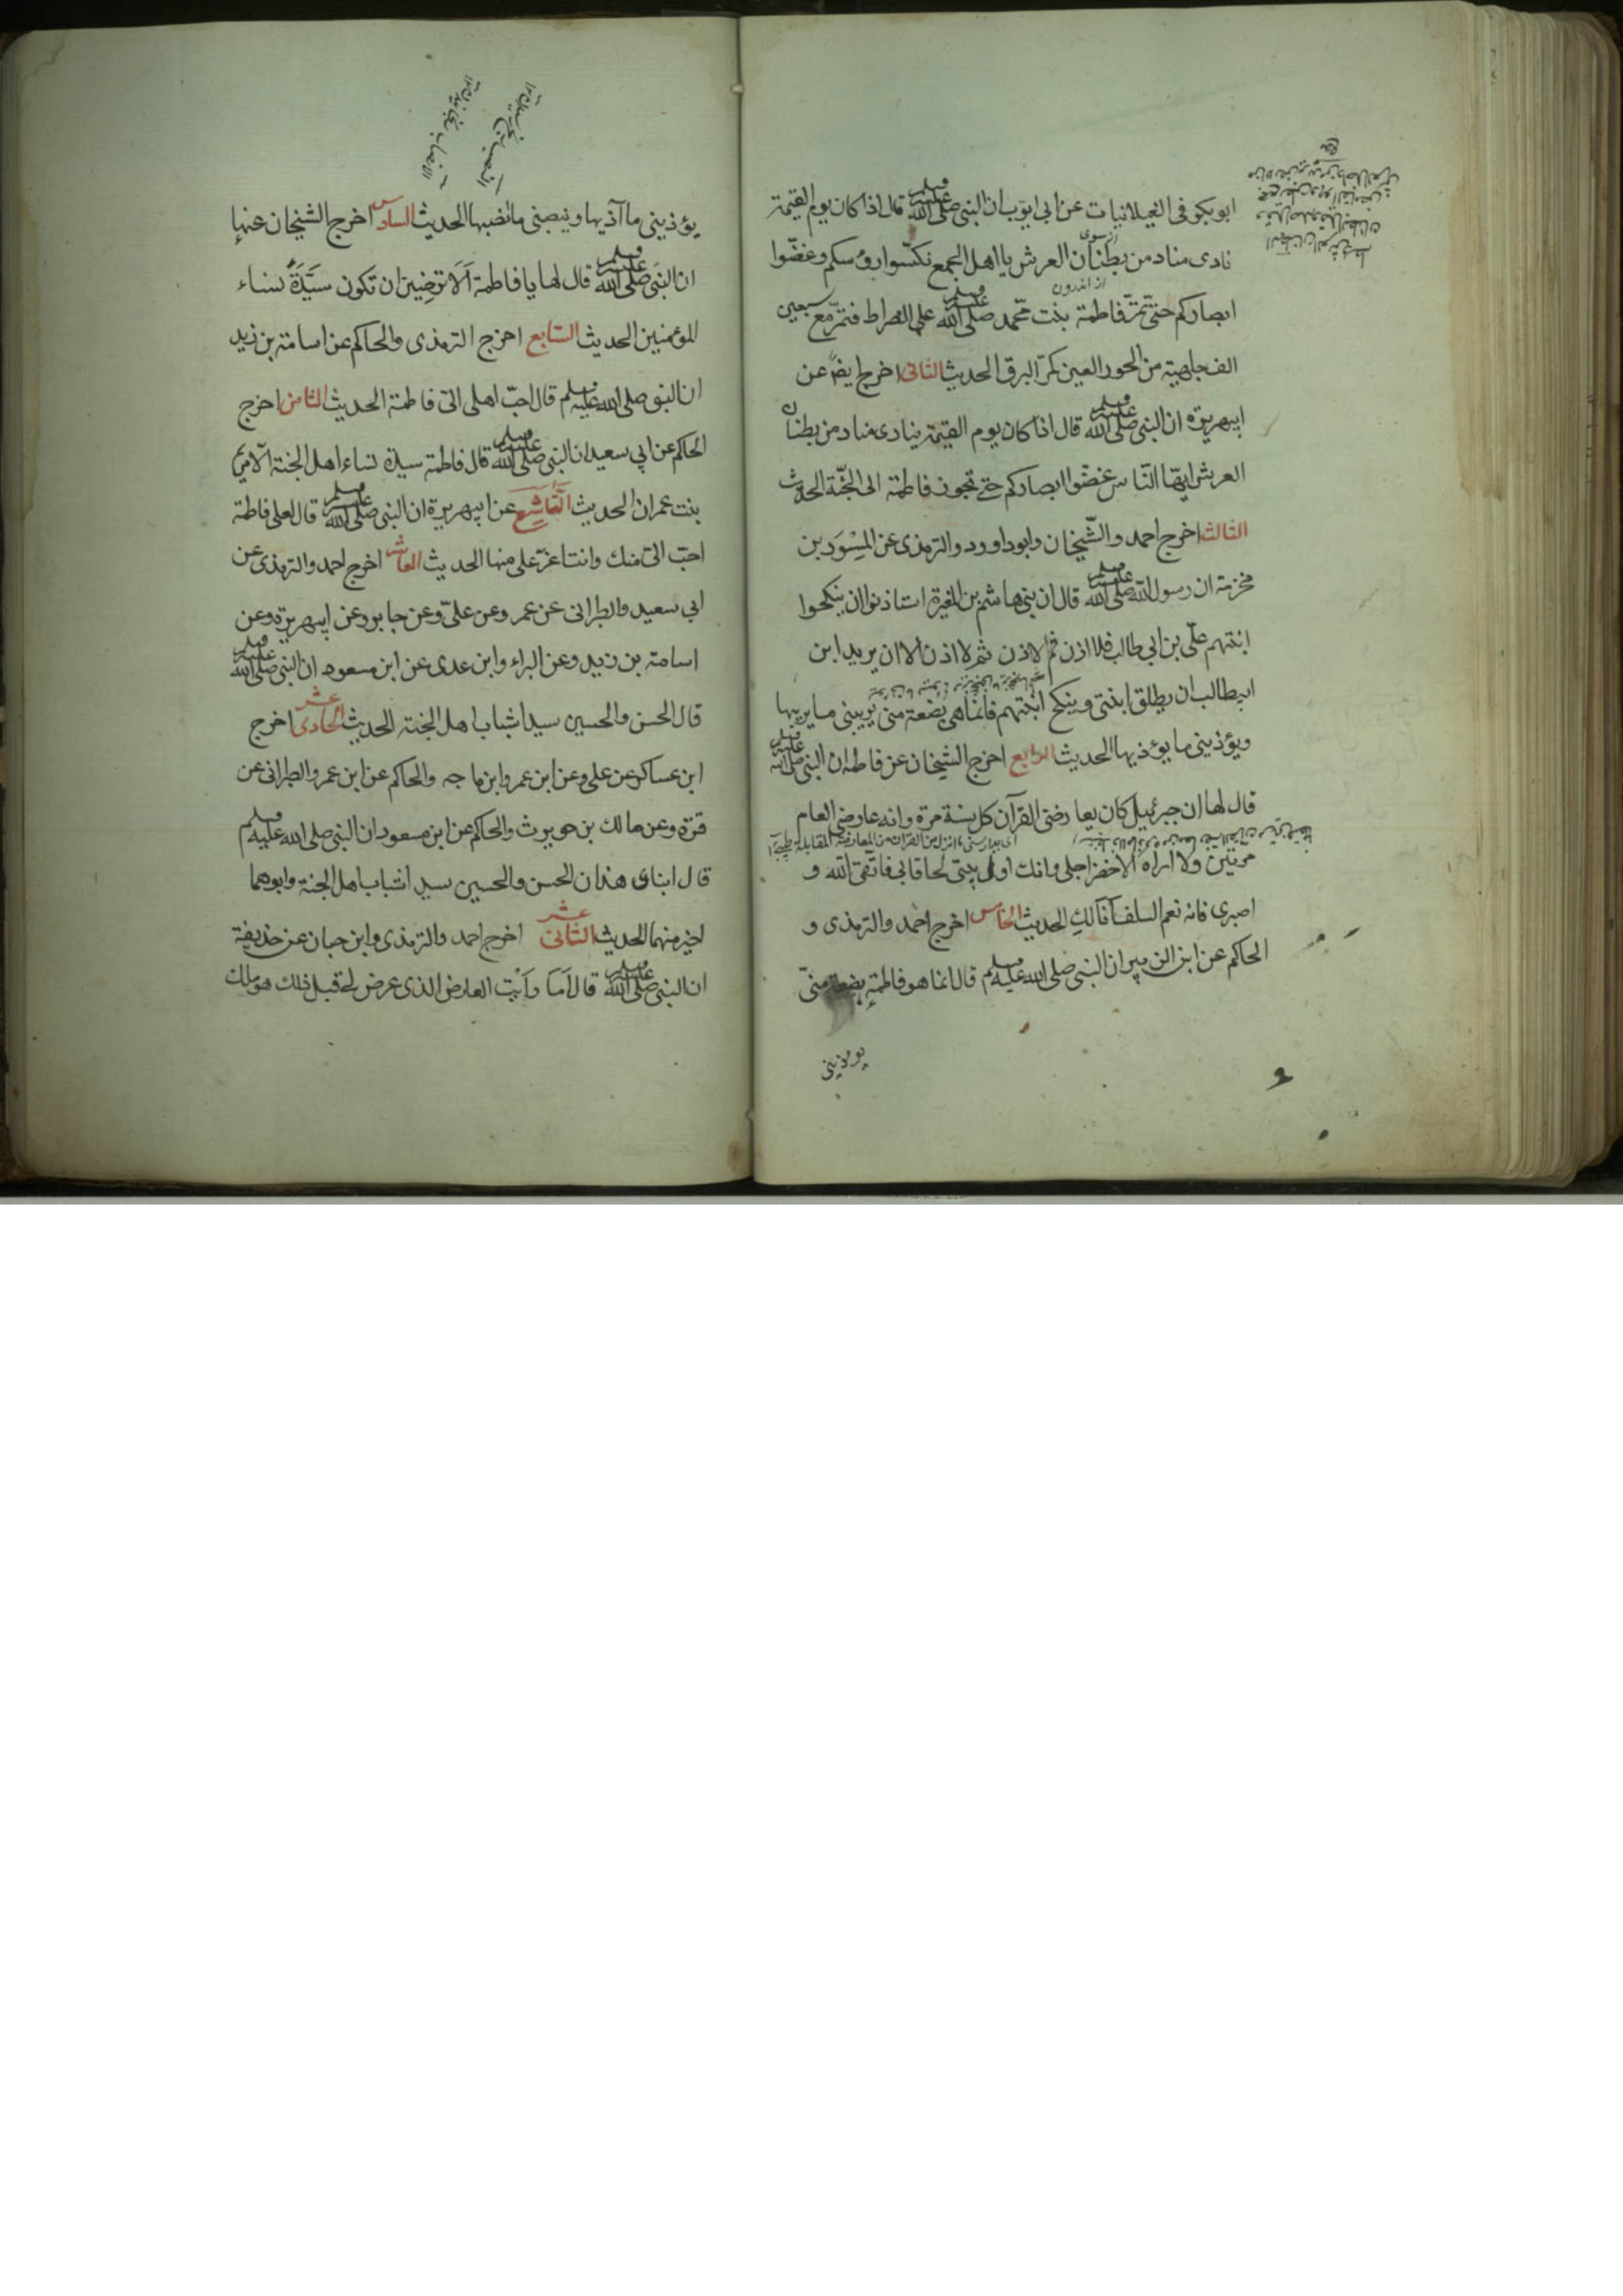 ابو بكر فى الغيلانيات عن ابى ايوب ان النبى صلى الله عليه وسلم قال اذا كان يوم القيمة
نادى مناد من بطنان العرش يا اهل الجمع نكسوا رؤسكم وغضّوا
ابصاركم حتى تمرّ فاطمة بنت محمد صلى الله عليه وسلم على الصراط فتمرّ مع سبعين
الف جارية من الحور العين كمرّ البرق الحديث الثانى اخرج ايضا عن
ابيهريرة ان النبى صلى الله عليه وسلم قال اذا كان يوم القيمة ينادى مناد من بطنان
العرش ايها النّاس غضّوا ابصاركم حتى تجوز فاطمة الى الجنّة الحديث
الثالث اخرج احمد والشّيخان وابو داوود والترمذى عن المِسْوَر بن
مخرمة ان رسول الله صلى الله عليه وسلم قال ان بنى هاشم بن المغيرة استاذنوا ان ينكحوا
ابنتهم علّى بن ابى طالب فلا اذن ثم لا اذن ثم لا اذن الا ان يريد ابن
ابيطالب ان يطلق ابنتى وينكح ابنتهم فانما هى بضعة منى يريبنى ما يريبها
ويؤذينى ما يؤذيها الحديث الرابع اخرج الشيخان عن فاطمة ان النبى صلى الله عليه وسلم
قال لها ان جبرئيل كان يعارضنى القرآن كل سنة مرة وانه عارضنى العام
مرتين ولا اراه الا حضر اجلى وانك اول بيتى لحاقا بى فاتقى الله و
اصبرى فانه نعم السلف انا لكِ الحديث الخامس اخرج احمد والترمذى و
الحاكم عن ابن الزبير ان النبى صلى الله عليه وسلم قال انما هو فاطمة بضعة منّى
يوذينى
يؤذينى ما آذيها وينصبنى ما نصبها الحديث السادس اخرج الشيخان عنها
ان النبى صلى الله عليه وسلم قال لها يا فاطمة اَلَا ترضين ان تكون سَيّدَةُ نساء
المؤمنين الحديث السّابع اخرج الترمذى والحاكم عن اسامة بن زيد
ان النبى صلى الله عليه وسلم قال احبّ اهلى الىّ فاطمة الحديث الثامن اخرج
الحاكم عن ابى سعيد ان النبى صلى الله عليه وسلم قال فاطمة سيدة نساء اهل الجنة الّا مريم
بنت عمران الحديث التّاسع عن ابيهريرة ان النبى صلى الله عليه وسلم قال لعلى فاطمة
احبّ الىّ منك وانت اعزّ علىّ منها الحديث العاشر اخرج احمد والترمذى عن
ابى سعيد والطبرانى عن عمر وعن علىّ وعن جابر وعن ابيهريرة وعن
اسامة بن زيد وعن البراء وابن عدى عن ابن مسعود ان النبى صلى الله عليه وسلم
قال الحسن والحسين سيدا شباب اهل الجنة الحديث الحادى عشر اخرج
ابن عساكر عن على وعن ابن عمر وابن ماجه والحاكم عن ابن عمر والطبرانى عن
قرّة وعن مالك بن حويرث والحاكم عن ابن مسعود ان النبى صلى الله عليه وسلم
قال ابناى هذان الحسن والحسين سيدا شباب اهل الجنة وابوهما
اخير منهما الحديث الثانى عشر اخرج احمد والترمذى وابن حبان عن حذيفة
ان النبى صلى الله عليه وسلم قال اَما رأيت العارض الذى عرض لى قبل ذلك هو ملك